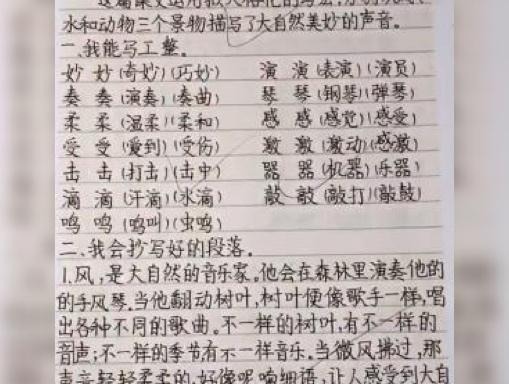 这篇课文运用拟人
水和动物三个景物描写了大自然美妙的声音。
一、我能写工整。
妙 妙(奇妙)(巧妙) 演 演(表演)(演员)
奏 奏(演奏)(奏曲) 琴 琴(钢琴)(弹琴)
柔 柔(温柔)(柔和) 感 感(感觉)(感受)
受 受(受到)(受伤) 激 激(激动)(感激)
击 击(打击)(击中) 器 器(机器)(乐器)
滴 滴(汗滴)(水滴) 敲 敲(敲打)(敲鼓)
鸣 鸣(鸣叫)(虫鸣)
二、我会抄写好的段落。
1.风,是大自然的音乐家。他会在森林里演奏他的
的手风琴。当他翻动树叶,树叶便像歌手一样,唱
出各种不同的歌曲。不一样的树叶,有不一样的
声音;不一样的季节有不一样音乐。当微风拂过,那
声音轻轻柔柔的,好像呢喃细语,让人感受到大自